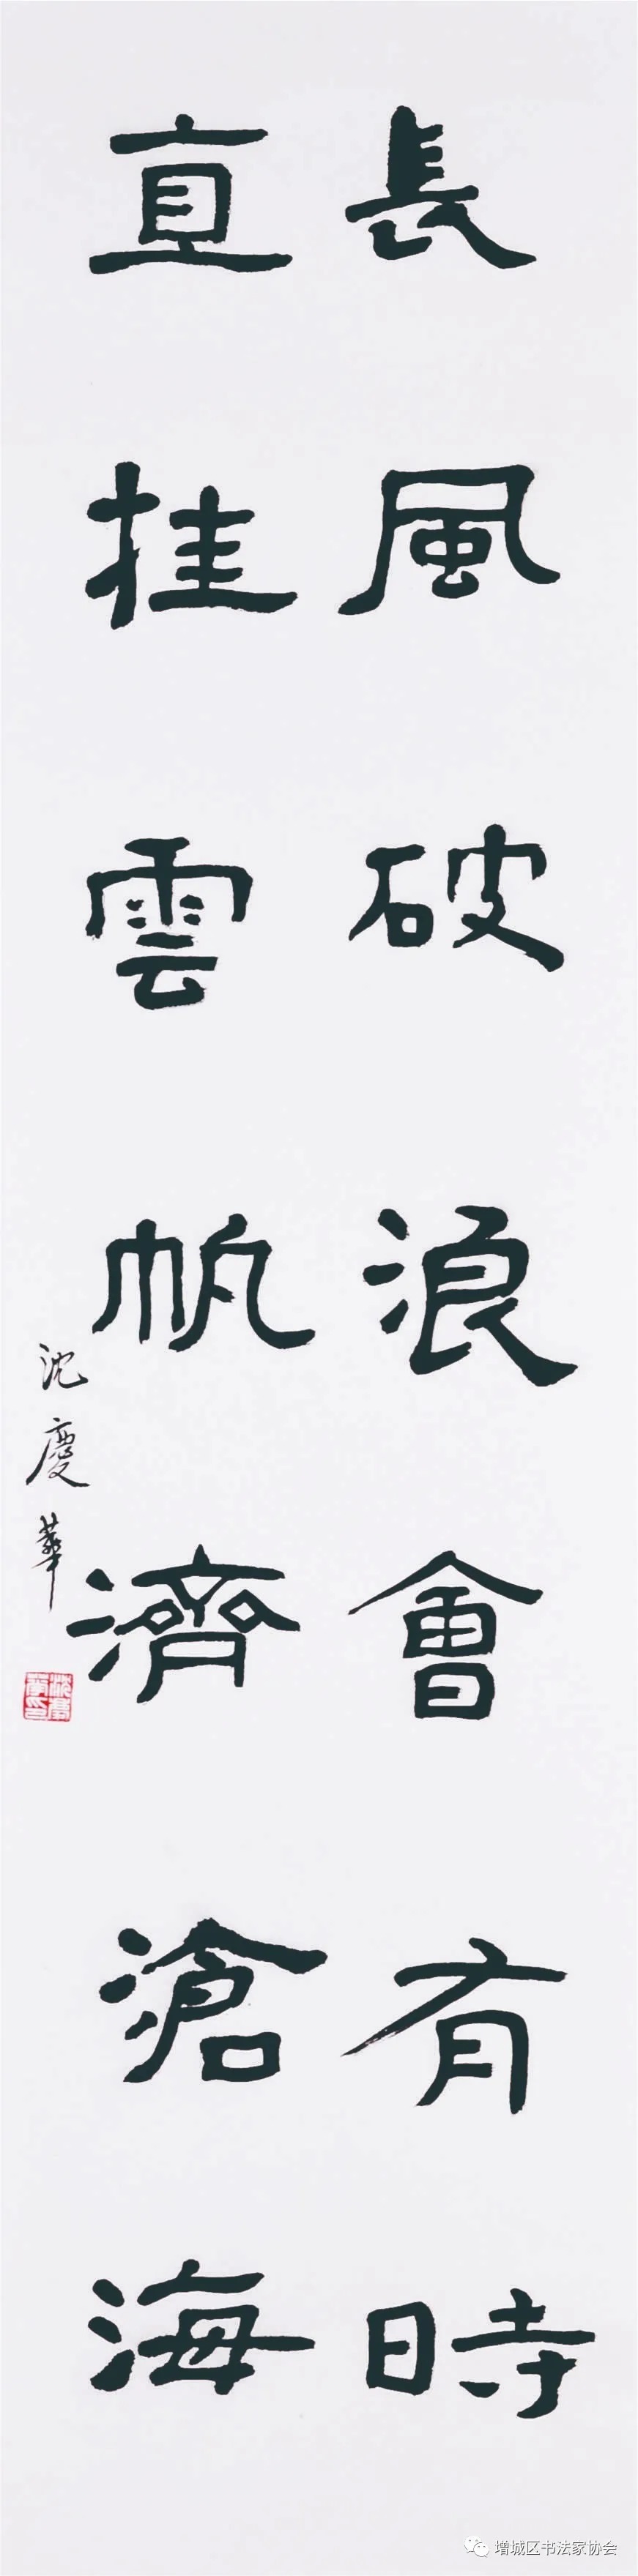 長風破浪會有時
直挂雲帆濟滄海
沈慶華
增城区书法家协会